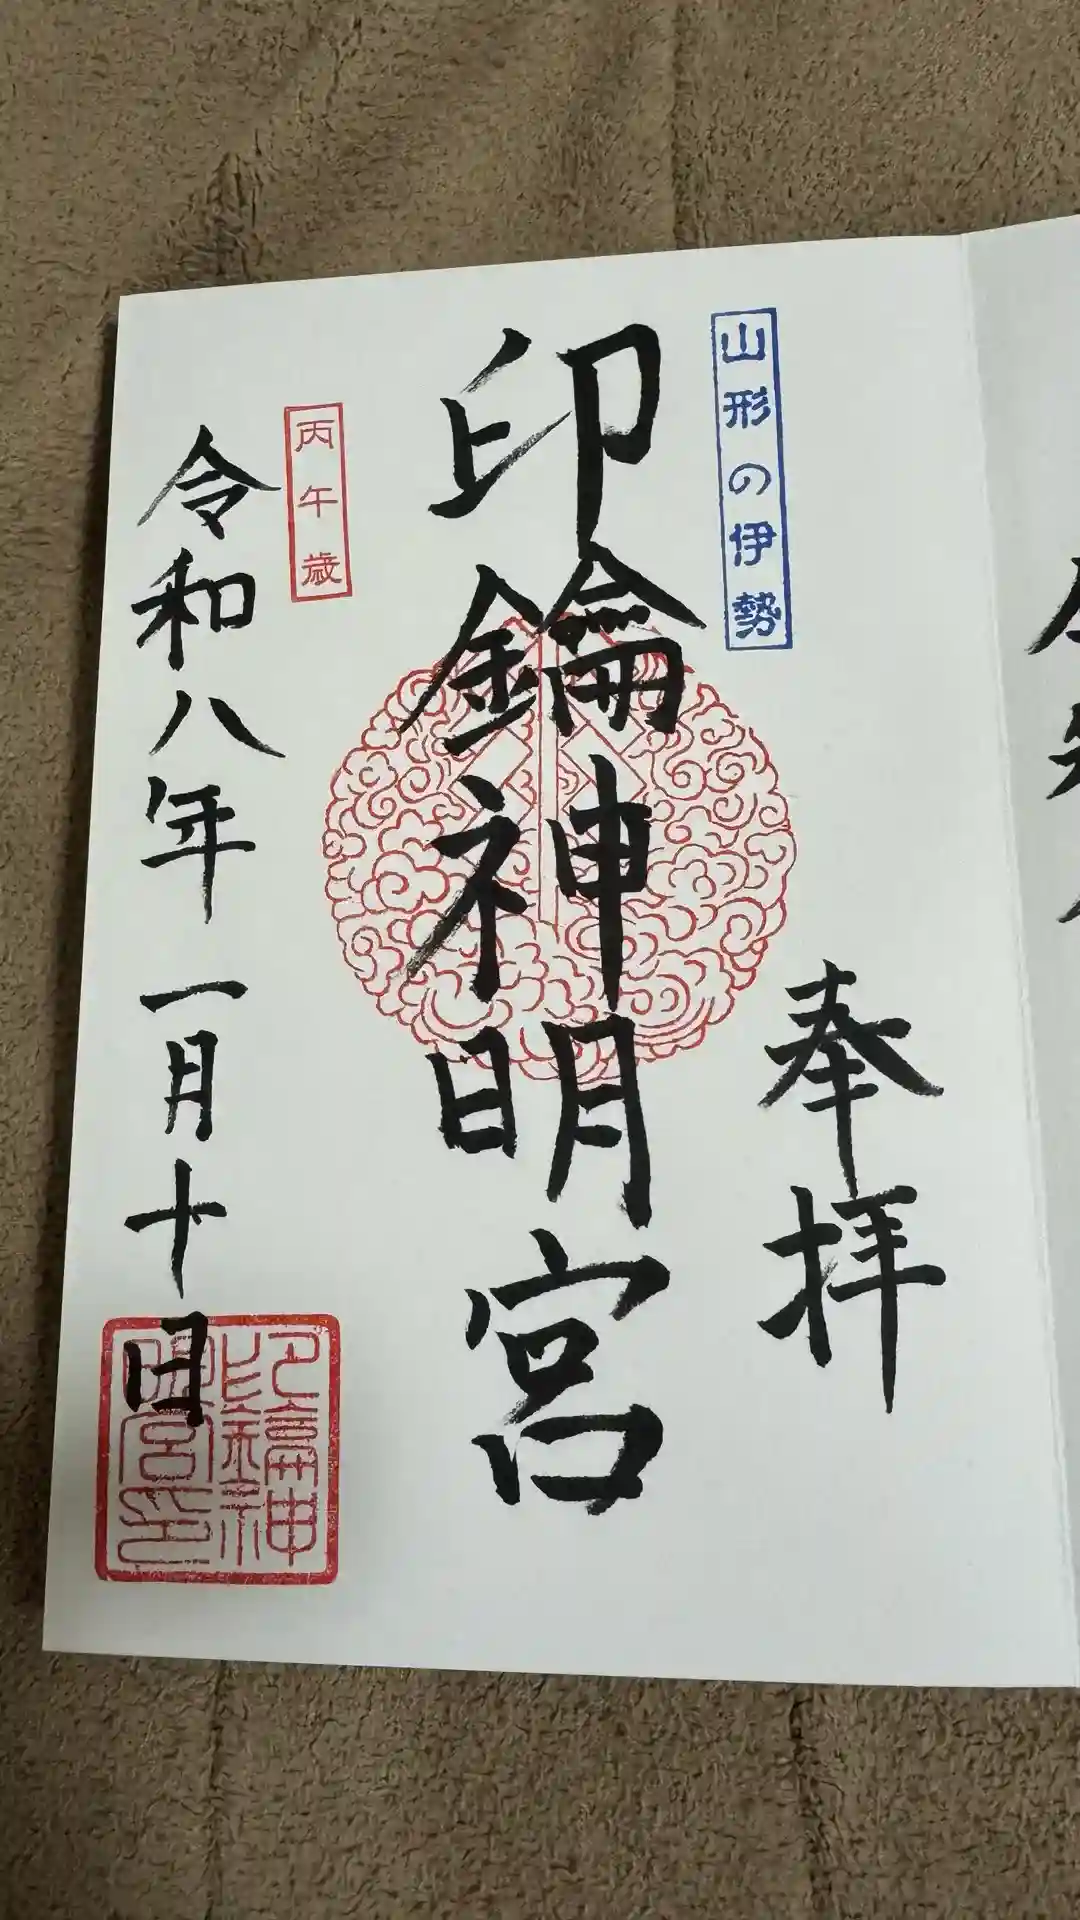 山形の伊勢
奉拝
印鑰神明宮
丙午歳
令和八年一月十日
印鑰神明宮印